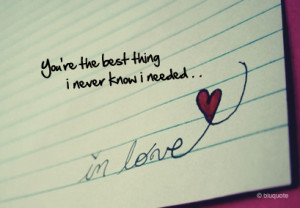 You're the best thing
i never know i needed..
in love
© bluquote